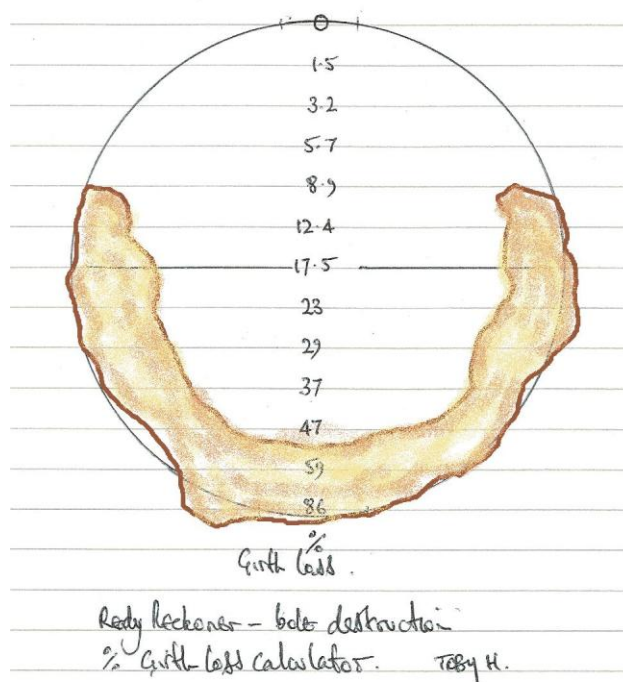 0
1.5
3.2
5.7
8.9
12.4
17.5
23
29
37
47
59
86
%
Girth loss.
Redy Reckoner - bole destruction
% Girth loss calculator. TOBY H.